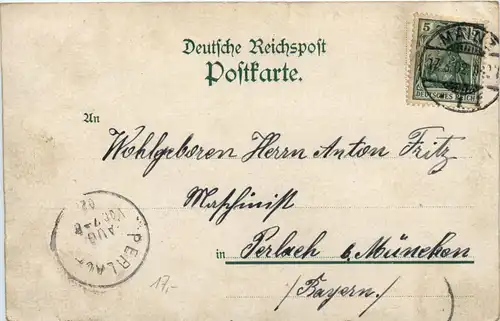 Deutsche Reichspost
Postkarte.
5
DEUTSCHES REICH
MAINZ
An
Wohlgeboren Herrn Anton Fritz
Maschinist
in Perlach b. München
/Bayern./
PERLACH
AUG
VOR 7-8
02
17.-